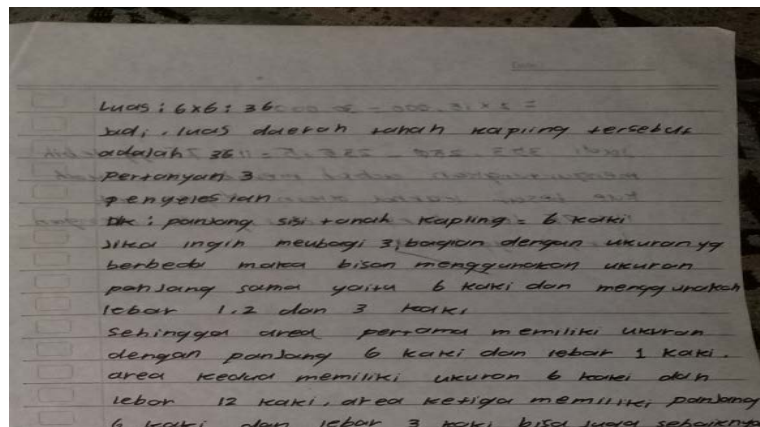 Luas : 6x6 : 36
Jadi, luas daerah tanah kapling tersebut
adalah 36
Pertanyan 3
Penyelesian
Dik : panjang sisi tanah kapling = 6 kaki
Jika ingin meubagi 3 bagian dengan ukuran yg
berbeda maka bisa menggunakan ukuran
panjang sama yaitu 6 kaki dan menggunakan
lebar 1.2 dan 3 kaki
Sehingga area pertama memiliki ukuran
dengan panjang 6 kaki dan lebar 1 kaki.
area kedua memiliki ukuran 6 kaki dan
lebar 12 kaki, area ketiga memiliki panjang
6 kaki dan lebar 3 kaki bisa juga sebaiknya